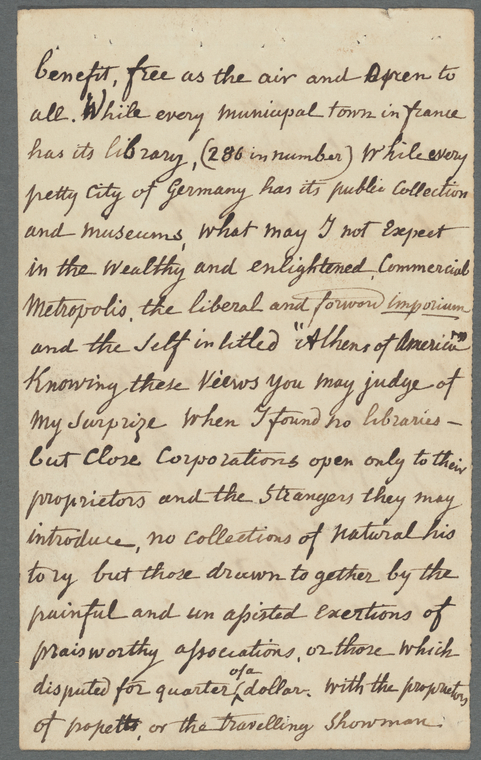 benefit, free as the air and Open to
all. While every municipal town in france
has its library, (286 in number) While every
petty City of Germany has its public Collection
and museums, what may I not Expect
in the wealthy and enlightened Commercial
Metropolis, the liberal and forword Emporium
and the Self intitled "Athens of America"
Knowing these Views you may judge of
my Surprize when I found no libraries –
but Close Corporations open only to their
proprietors and the Strangers they may
introduce, no collections of Natural his
tory but those drawn together by the
painful and un assisted Exertions of
praisworthy associations, or those which
disputed for quarter of a dollar. with the proprietors
of popetts, or the travelling Showman.